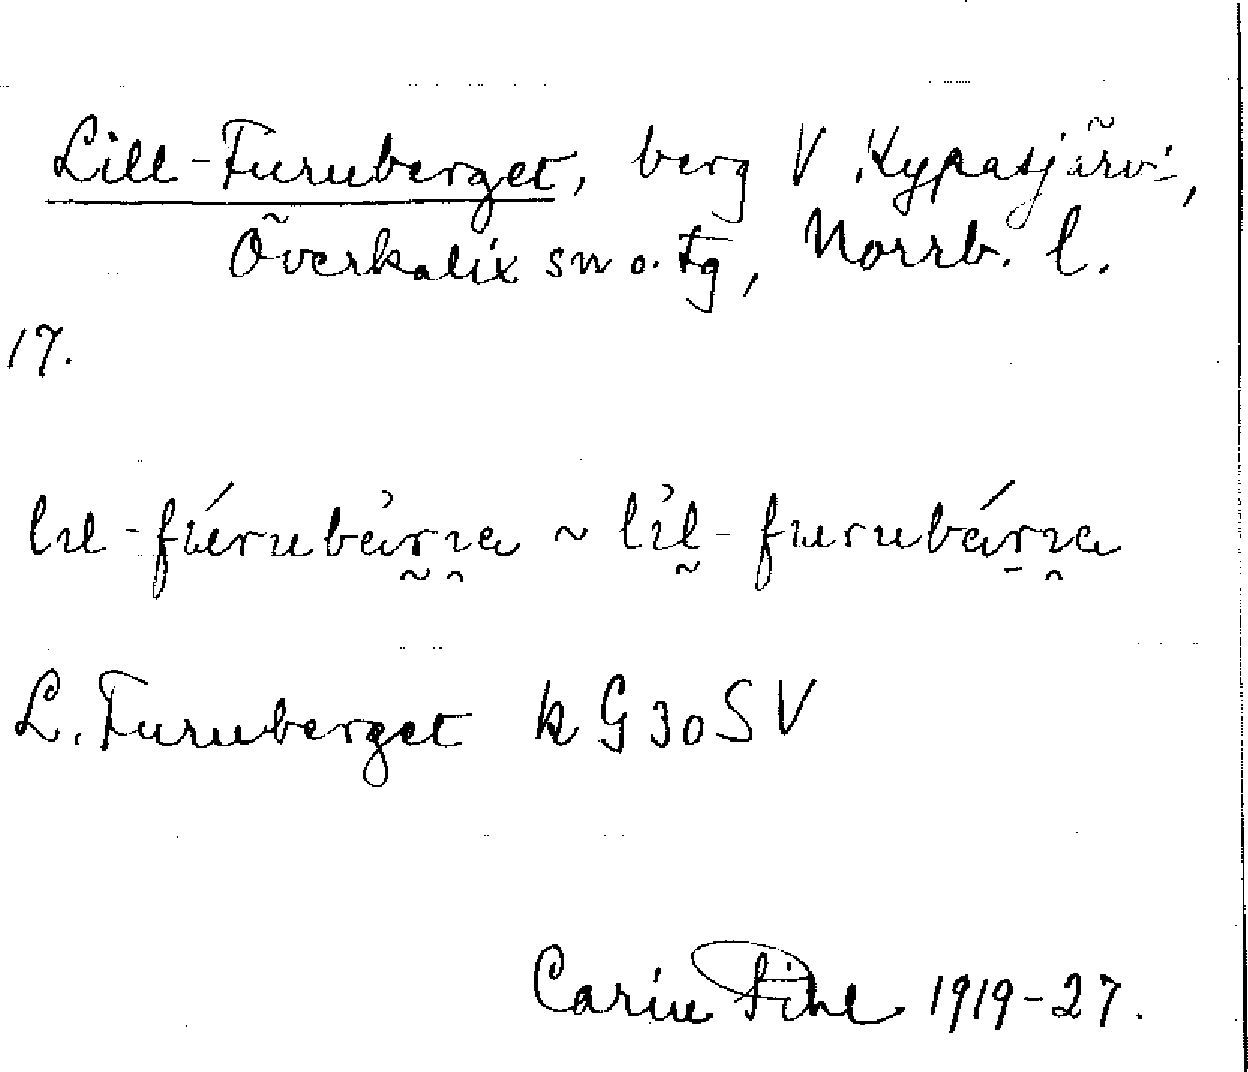 Lill-Furuberget, berg V. Kypasjärvi,
Överkalix sn o. tg, Norrb. l.
17.
lɪl-fúrubàrɪa ~ lɪ̀l-furubárɪa
L. Furuberget k G 30 SV
Carin Pihl 1919-27.